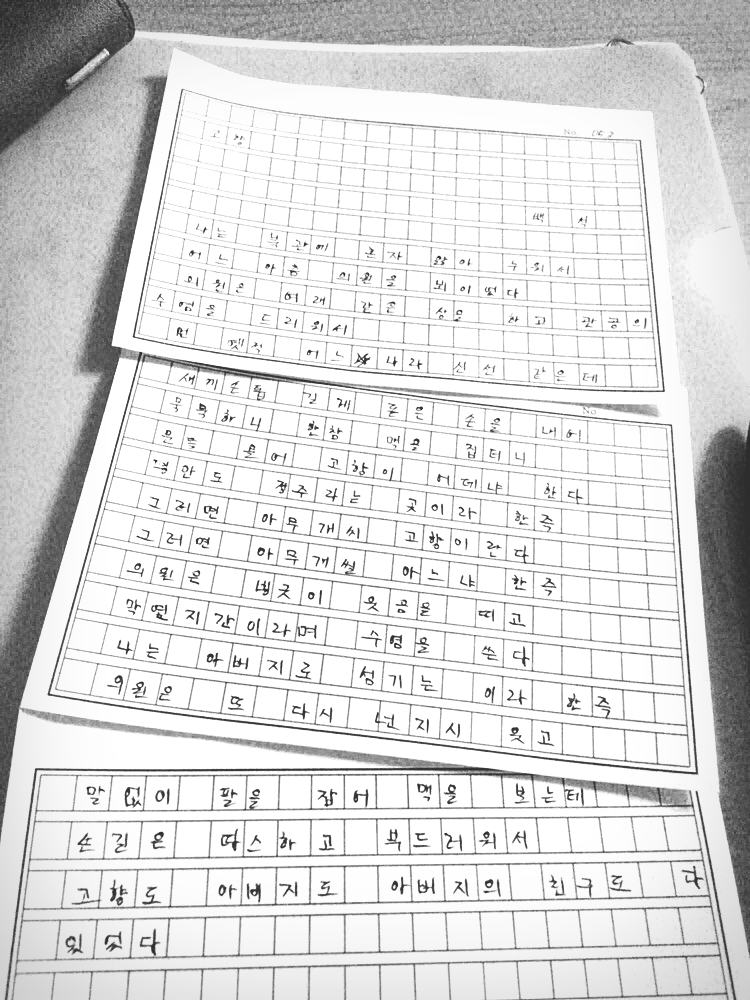 No. 062
고향
백석
나는 북관에 혼자 앓아 누워서
어느 아츰 의원을 뵈이었다
의원은 여래 같은 상을 하고 관공의
수염을 드리워서
먼 옛적 어느 나라 신선 같은데
No.
새끼손톱 길게 돋은 손을 내어
묵묵하니 한참 맥을 집더니
문득 물어 고향이 어데냐 한다
평안도 정주라는 곳이라 한즉
그러면 아무개씨 고향이란다
그러면 아무개씰 아느냐 한즉
의원은 빙긋이 웃음을 띠고
막열지간이라며 수염을 쓴다
나는 아버지로 섬기는 이라 한즉
의원은 또 다시 넌지시 웃고
말 없이 팔을 잡어 맥을 보는데
손길은 따스하고 부드러워서
고향도 아버지도 아버지의 친구도 다
있었다